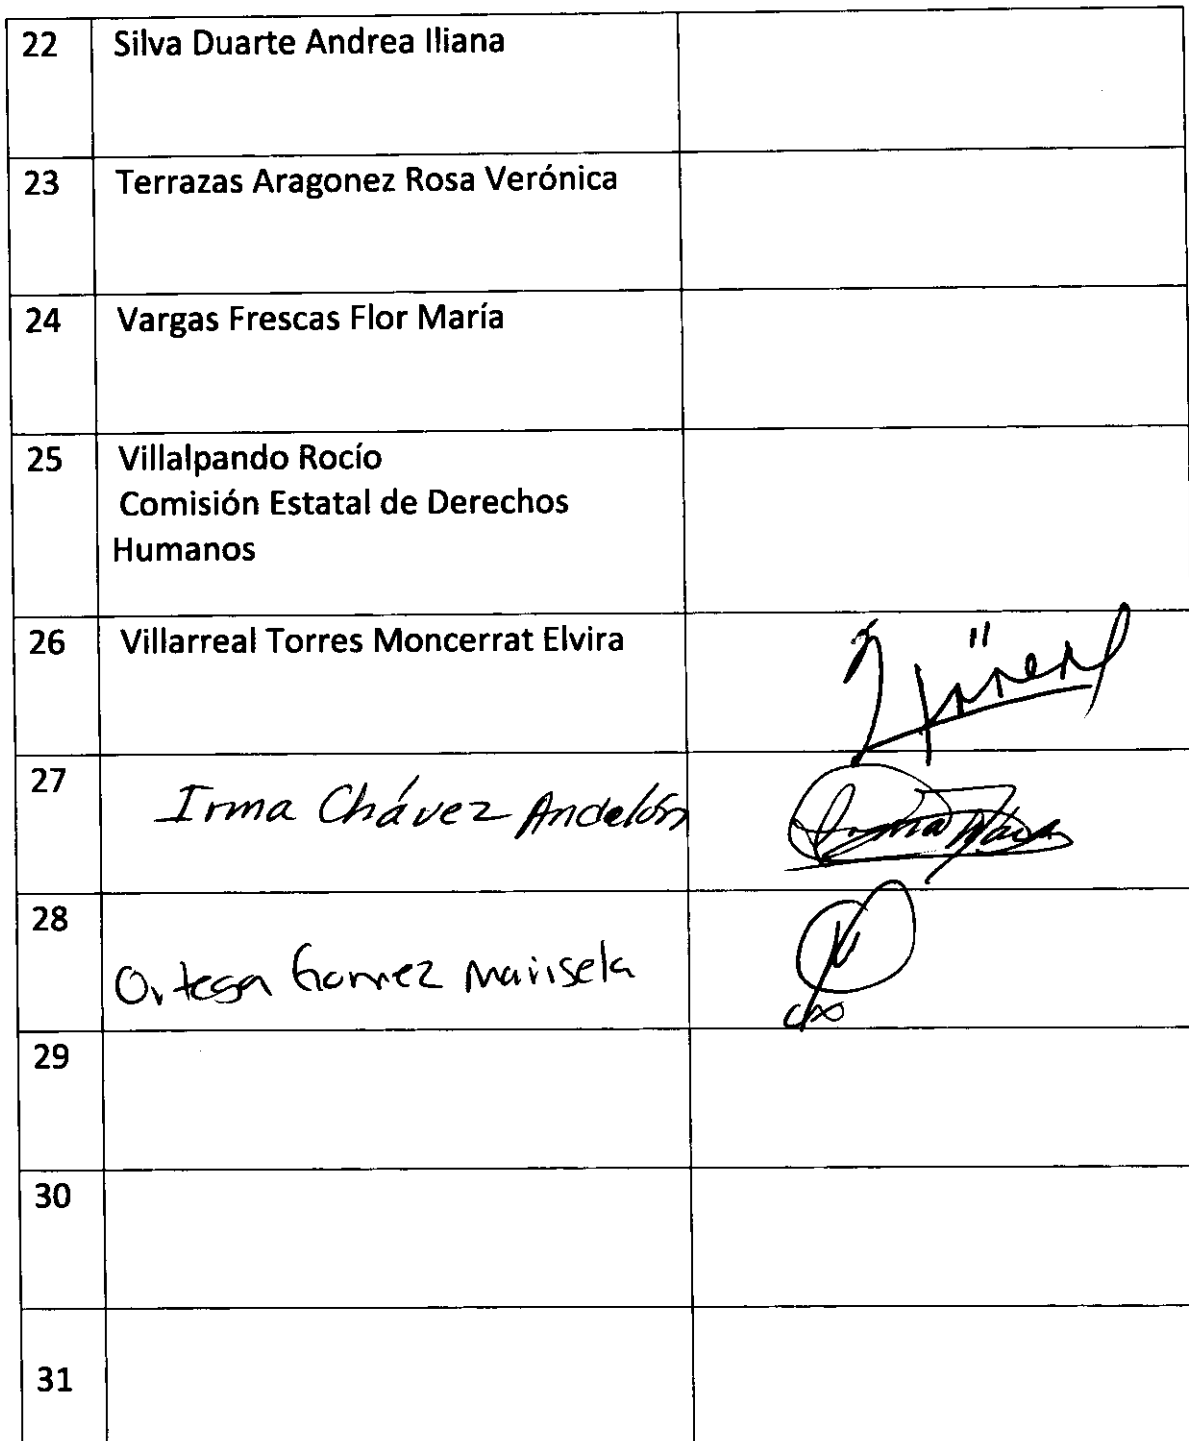 22 Silva Duarte Andrea Iliana
23 Terrazas Aragonez Rosa Verónica
24 Vargas Frescas Flor María
25 Villalpando Rocío
Comisión Estatal de Derechos
Humanos
26 Villarreal Torres Moncerrat Elvira
27 Irma Chávez Andelón
28 Ortega Gomez Marisela
29
30
31